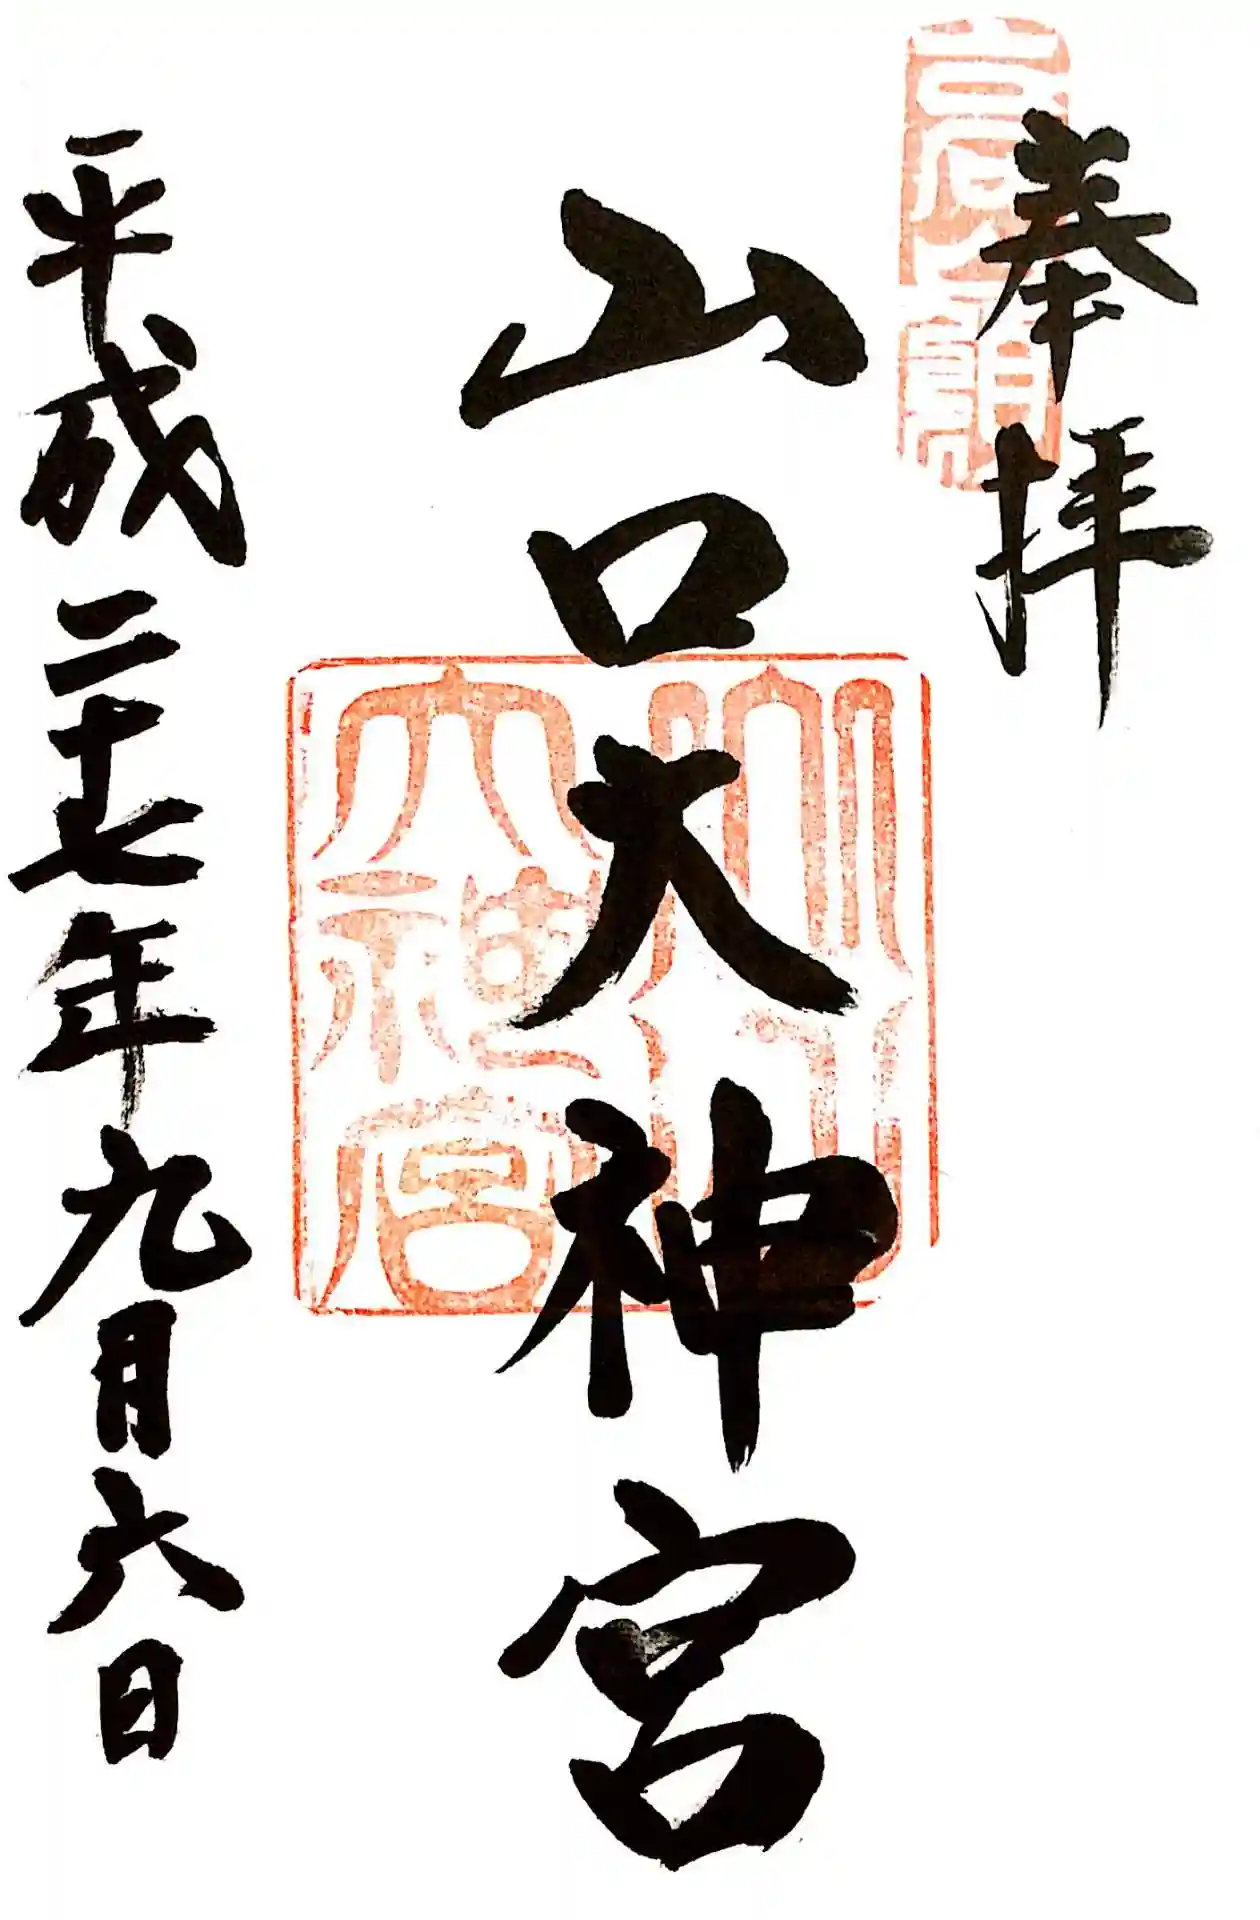 奉拝
山口大神宮
山口大神宮
平成二十七年九月六日